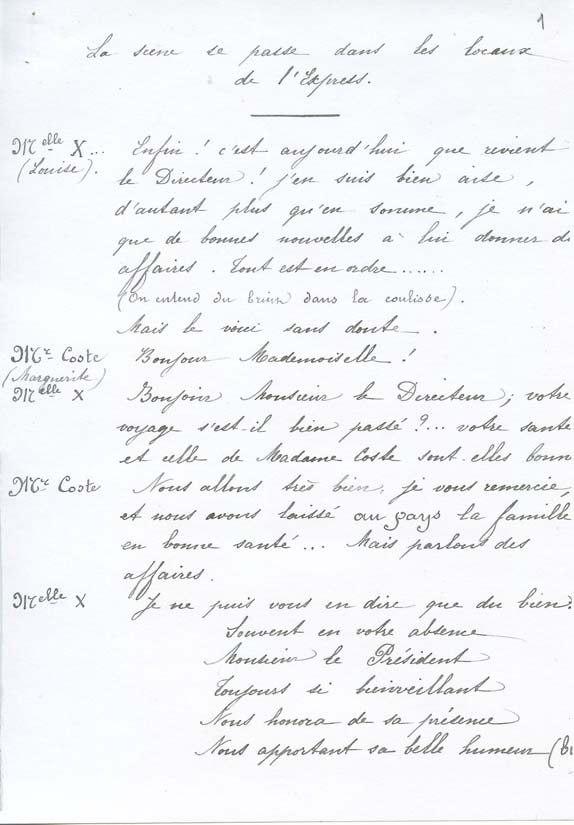 1
La scène se passe dans les locaux
de l'Express.
Melle X... Enfin ! c'est aujourd'hui que revient
(Louise). le Directeur ! j'en suis bien aise,
d'autant plus qu'en somme, je n'ai
que de bonnes nouvelles à lui donner d
affaires. Tout est en ordre......
(On entend du bruit dans la coulisse).
Mais le voici sans doute.
Mr Coste Bonjour Mademoiselle !
(Marguerite)
Melle X Bonjour Monsieur le Directeur ; votre
voyage s'est-il bien passé ?... votre santé
et celle de Madame Coste sont-elles bonn
Mr Coste Nous allons très bien, je vous remercie,
et nous avons laissé au pays la famille
en bonne santé... Mais parlons des
affaires.
Melle X Je ne puis vous en dire que du bien.
Souvent en votre absence
Monsieur le Président
Toujours si bienveillant
Nous honora de sa présence
Nous apportant sa belle humeur (b